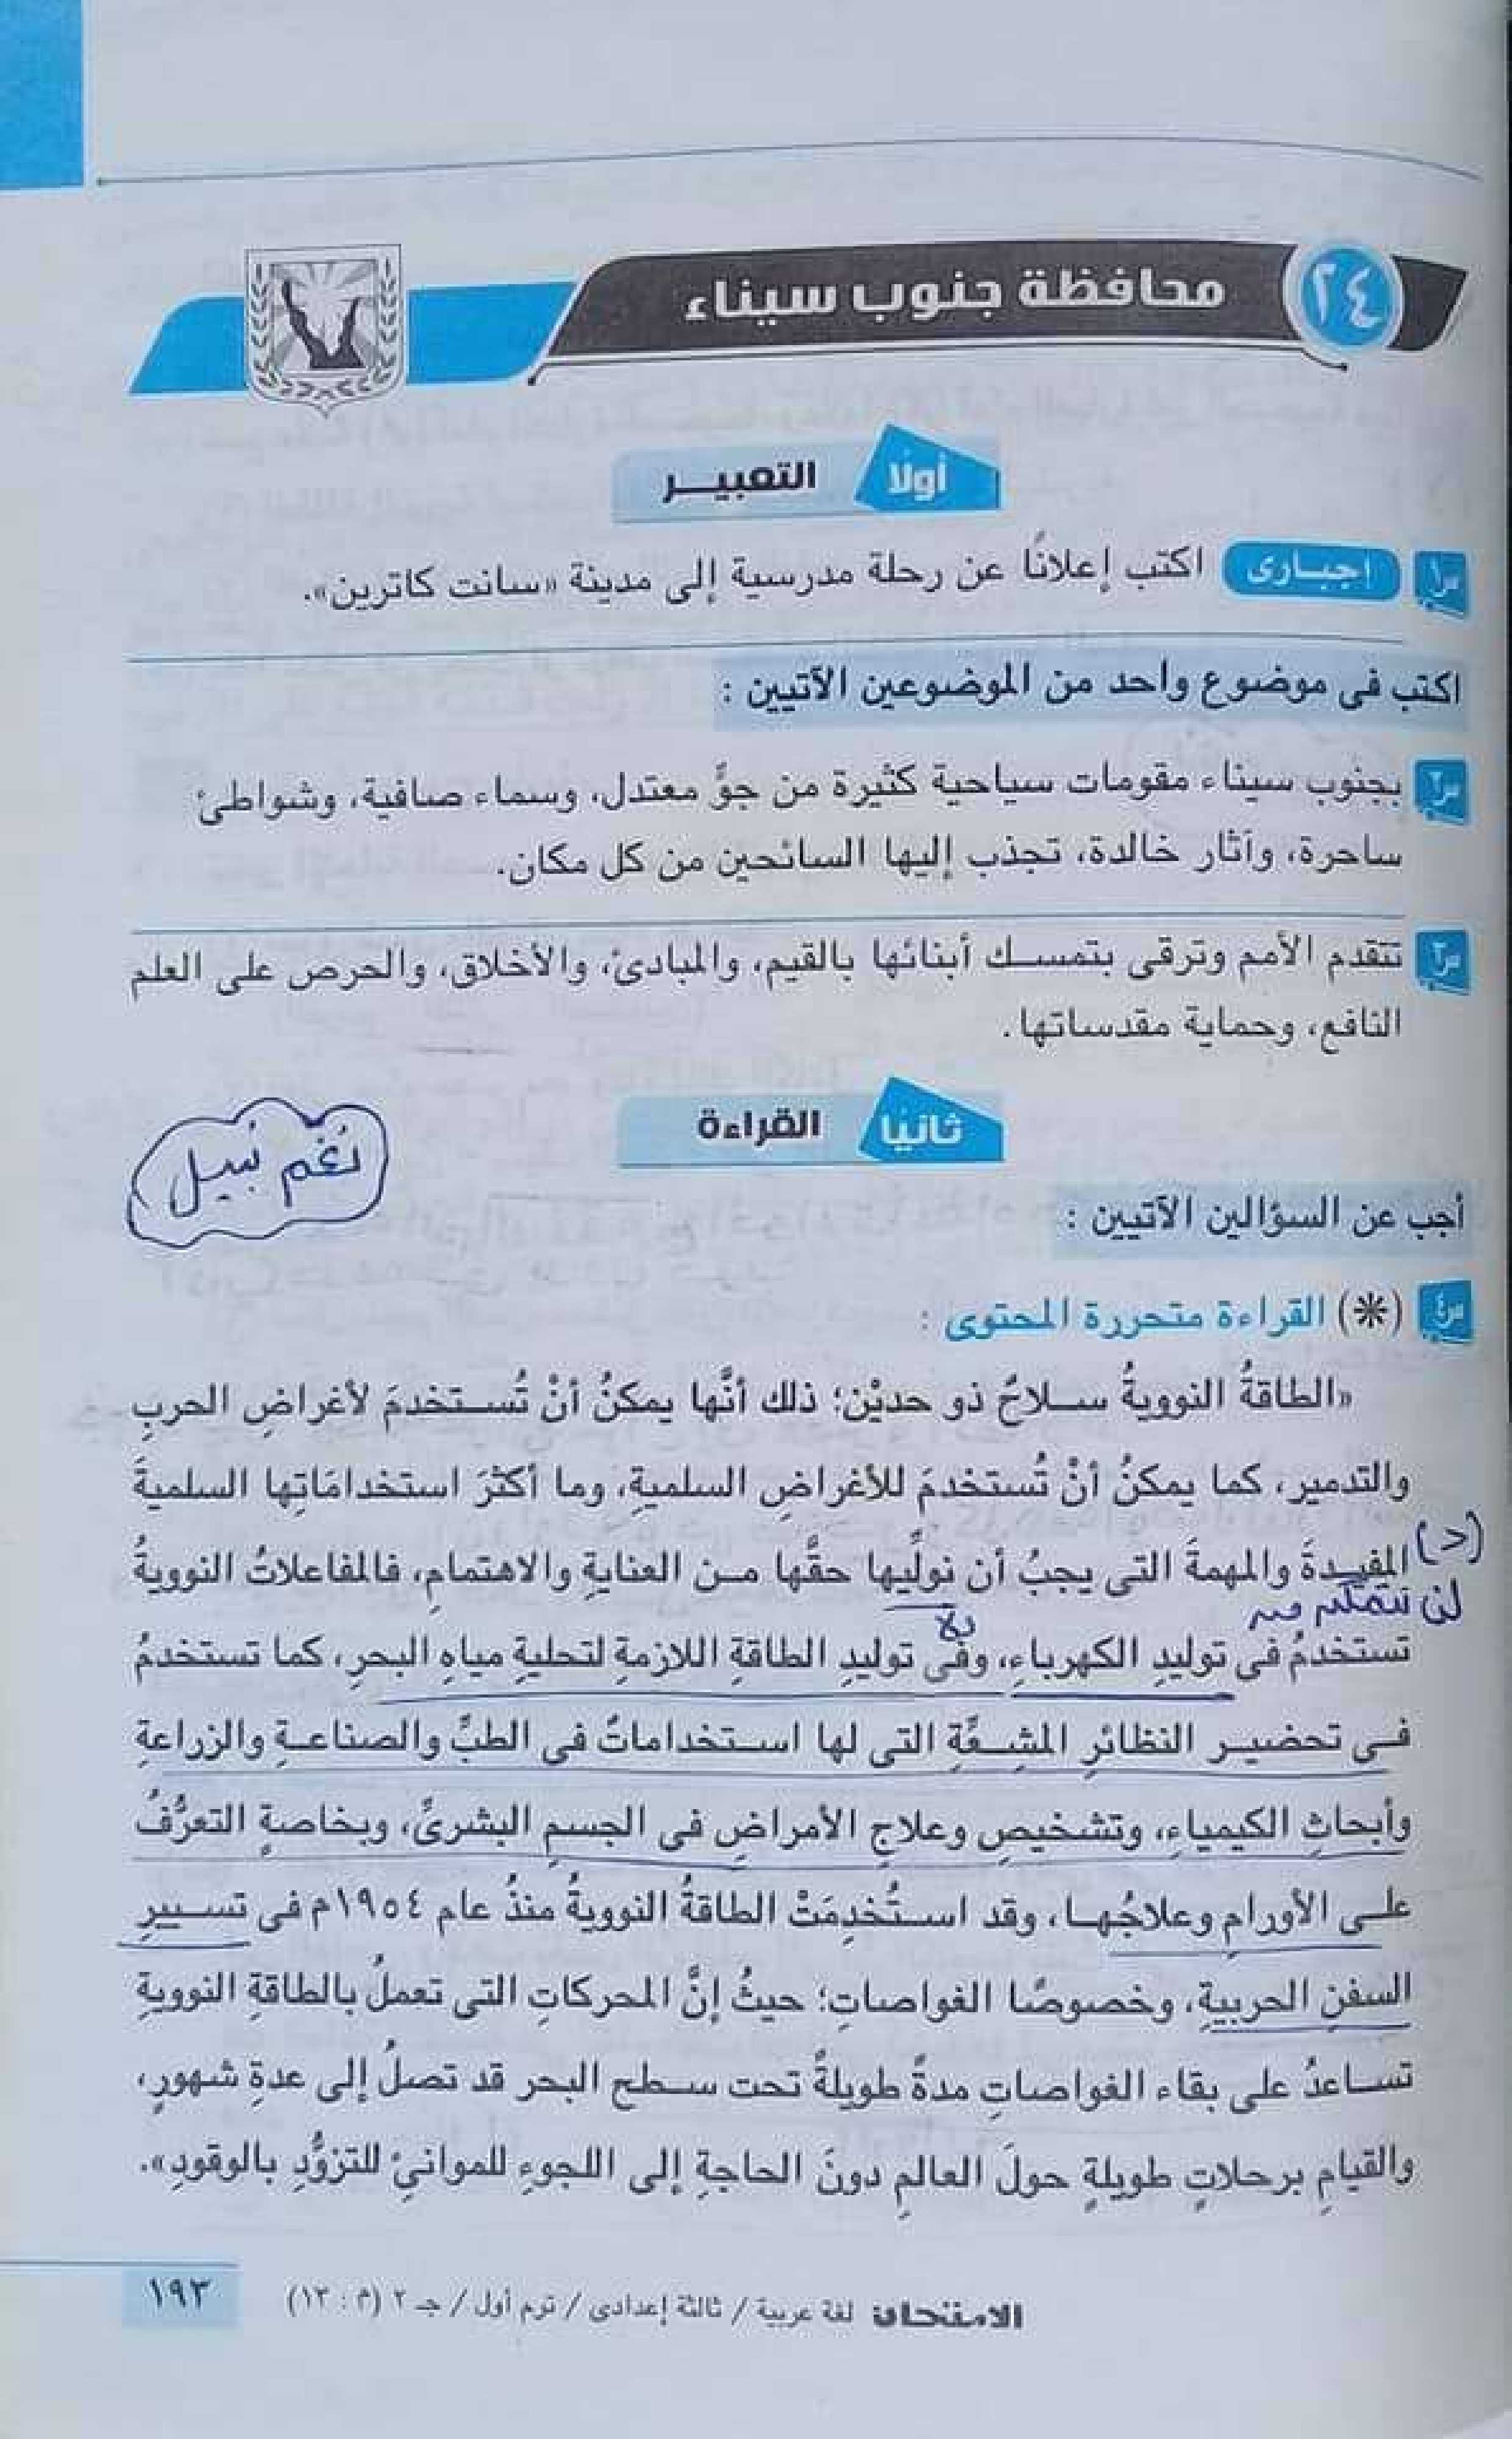 ٢٤ محافظة جنوب سيناء
أولًا التعبيــر
س١ إجبــارى اكتب إعلانًا عن رحلة مدرسية إلى مدينة «سانت كاترين».
اكتب فى موضوع واحد من الموضوعين الآتيين :
س٢ بجنوب سيناء مقومات سياحية كثيرة من جوٍّ معتدل، وسماء صافية، وشواطئ
ساحرة، وآثار خالدة، تجذب إليها السائحين من كل مكان.
س٣ تتقدم الأمم وترقى بتمسـك أبنائها بالقيم، والمبادئ، والأخلاق، والحرص على العلم
النافع، وحماية مقدساتها.
ثانيًا القراءة
نغم نبيل
أجب عن السؤالين الآتيين :
س٤ (*) القراءة متحررة المحتوى :
«الطاقةُ النوويةُ سـلاحٌ ذو حديْن؛ ذلك أنَّها يمكنُ أنْ تُسـتخدمَ لأغراضِ الحربِ
والتدميرِ، كما يمكنُ أنْ تُستخدمَ للأغراضِ السلميةِ، وما أكثرَ استخدامَاتِها السلميةَ
(د)
المفيـدةَ والمهمةَ التى يجبُ أن نولِّيها حقَّها مـن العنايةِ والاهتمامِ، فالمفاعلاتُ النوويةُ
لن
تستخدمُ فى توليدِ الكهرباءِ، وفى توليدِ الطاقةِ اللازمةِ لتحليةِ مياهِ البحرِ، كما تستخدمُ
فـى تحضيـرِ النظائرِ المشِـعَّةِ التى لها اسـتخداماتٌ فى الطبِّ والصناعـةِ والزراعةِ
وأبحاثِ الكيمياءِ، وتشخيصِ وعلاجِ الأمراضِ فى الجسمِ البشرىِّ، وبخاصةٍ التعرُّفُ
علـى الأورامِ وعلاجُهـا، وقد اسـتُخدِمَتْ الطاقةُ النوويةُ منذُ عام ١٩٥٤م فى تسـييرِ
السفنِ الحربيةِ، وخصوصًا الغواصاتِ؛ حيثُ إنَّ المحركاتِ التى تعملُ بالطاقةِ النوويةِ
تسـاعدُ على بقاء الغواصاتِ مدةً طويلةً تحت سـطح البحر قد تصلُ إلى عدةِ شهورٍ،
والقيامِ برحلاتٍ طويلةٍ حولَ العالمِ دونَ الحاجةِ إلى اللجوءِ للموانئِ للتزوُّدِ بالوقودِ».
الامتحان لغة عربية / ثالثة إعدادى / ترم أول / جـ ٢ (م : ١٣)
١٩٣